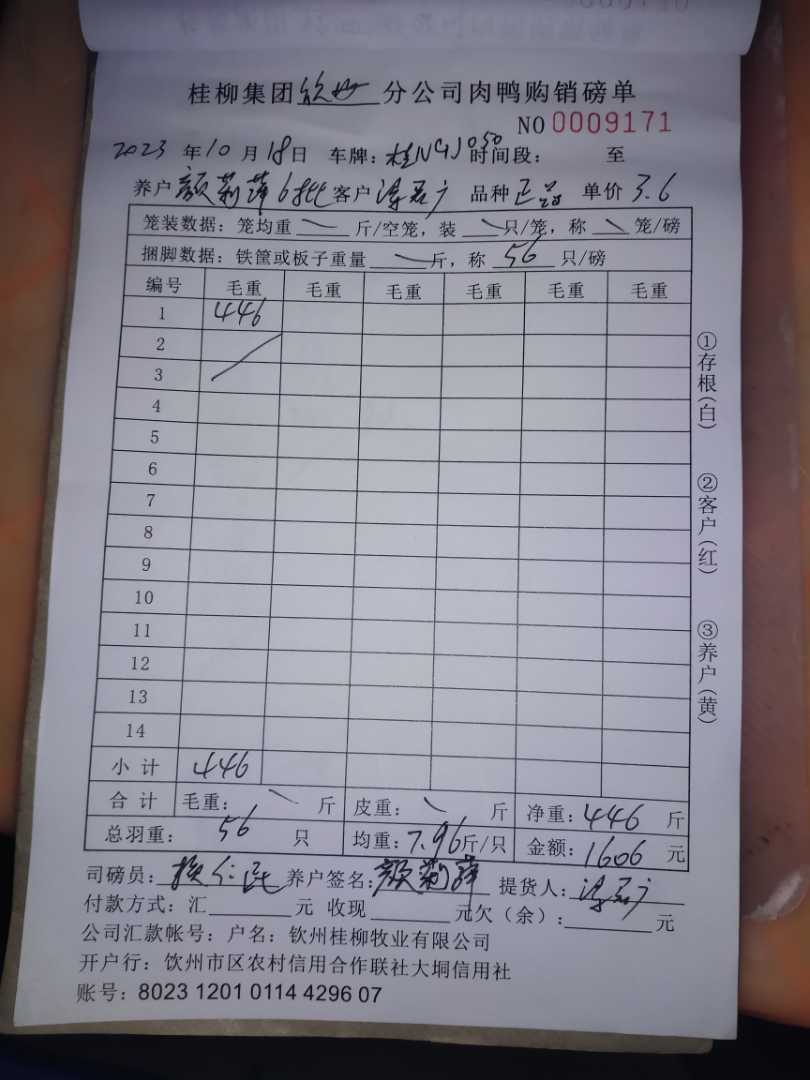 桂柳集团钦州分公司肉鸭购销磅单
NO 0009171
2023年10月18日 车牌：时间段： 至
养户颜莉萍6批客户 品种正品 单价3.6
笼装数据：笼均重 斤/空笼，装 只/笼，称 笼/磅
捆脚数据：铁筐或板子重量 斤，称 56 只/磅
编号 毛重 毛重 毛重 毛重 毛重 毛重
1 446
2
3
4
5
6
7
8
9
10
11
12
13
14
小计 446
合计 毛重： 斤 皮重： 斤 净重：446 斤
总羽重： 56 只 均重：7.96斤/只 金额：1606 元
司磅员： 养户签名：颜莉萍 提货人：
付款方式：汇 元 收现 元欠（余）： 元
公司汇款帐号：户名：钦州桂柳牧业有限公司
开户行：饮州市区农村信用合作联社大垌信用社
账号：8023 1201 0114 4296 07
①存根（白）
②客户（红）
③养户（黄）